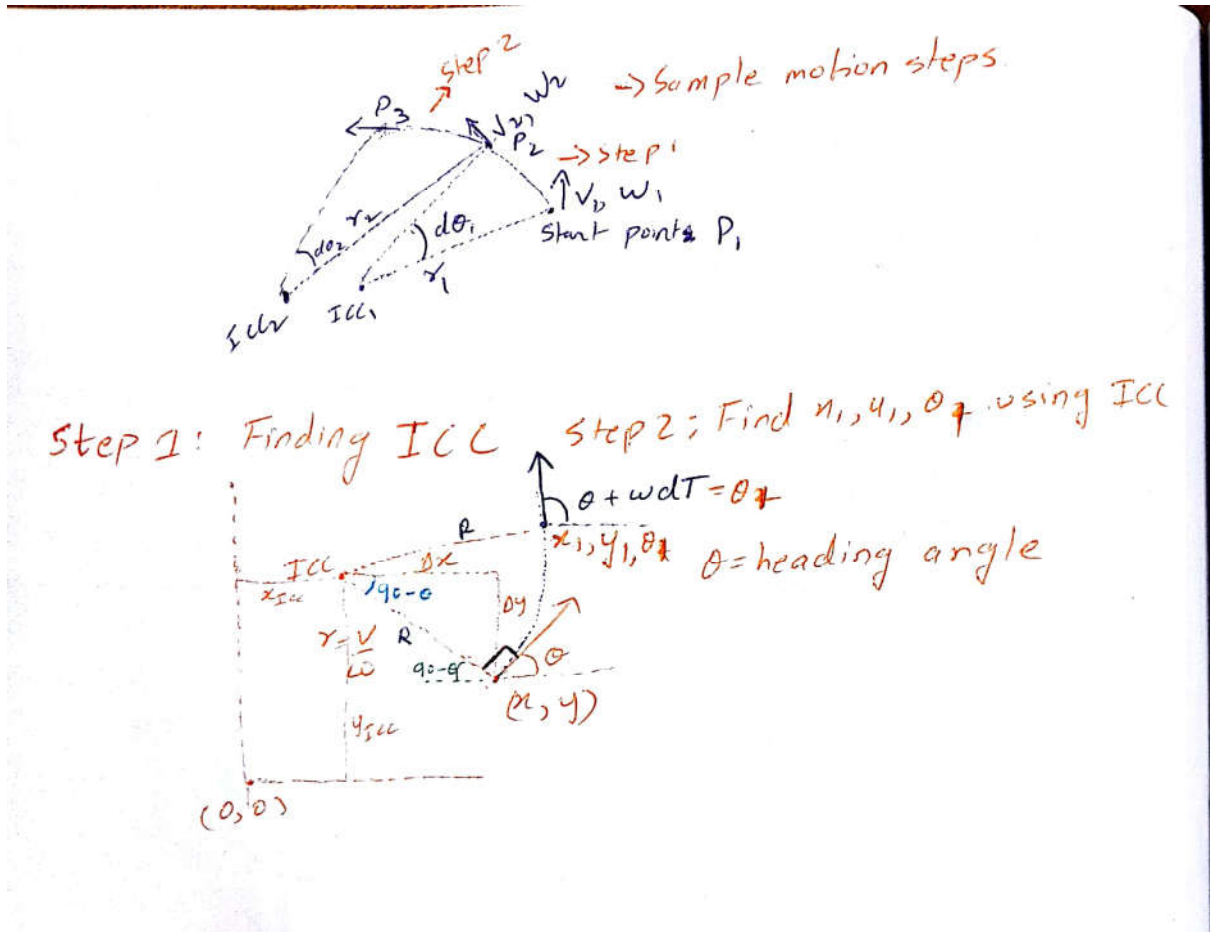 step 2
→ Sample motion steps.
P3
V2, W2
P2
→ step 1
V1, W1
Start point P1
r2
dθ2
dθ1
r1
ICC2
ICC1
Step 1: Finding ICC
Step 2; Find x1, y1, θ1 using ICC
θ + wdT = θ1
R
x1, y1, θ1
θ = heading angle
ICC
Δx
xICC
90-θ
Δy
r = V/ω
R
90-θ
θ
(x, y)
yICC
(0, 0)